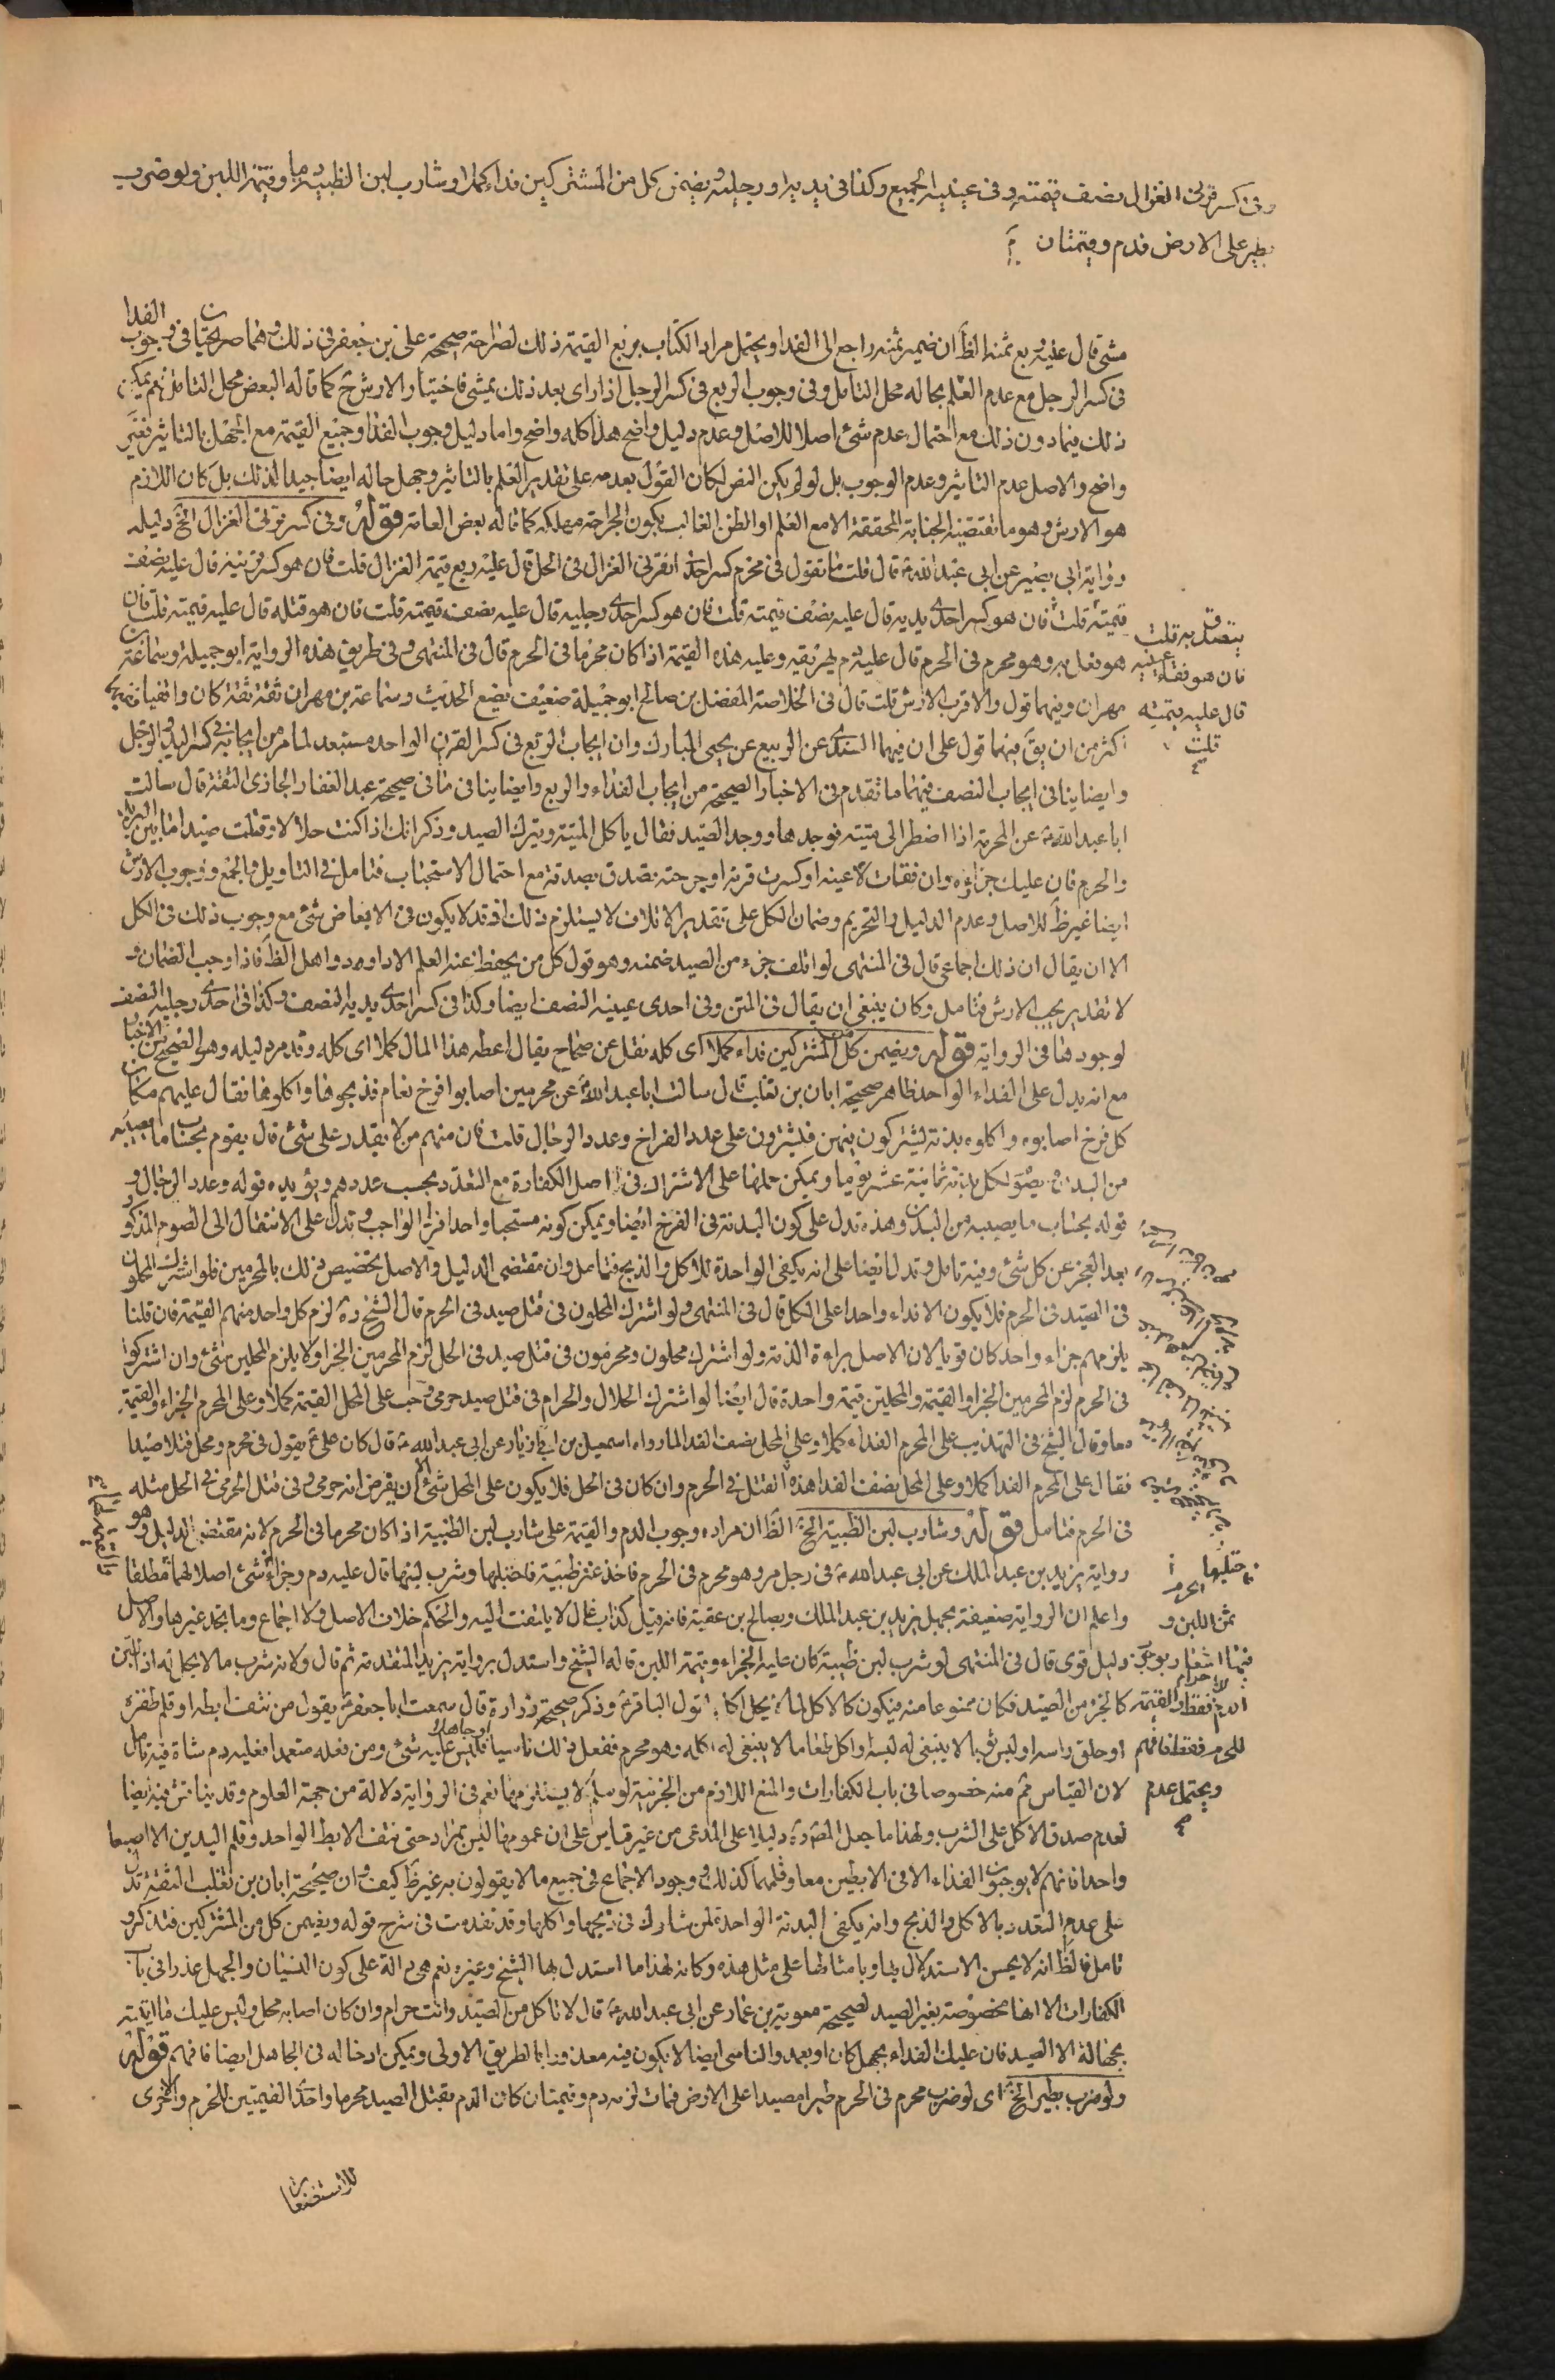 وفى كسر قرنى الغزال نصف قيمته وفى عينيه الجميع وكذا فى يديه او رجليه ويضمن كل من المشتركين فداء كملا وشارب لبن الظبية دما وقيمة اللبن ولو ضرب
بطير على الارض فدم وقيمتان
مشى قال عليه ربع ثمنه الظ ان ضمير ثمنه راجع الى الفداء ويحتمل مراد الكتاب بربع القيمة ذلك لصراحة صحيحة على بن جعفر فى ذلك وهما صريحتان فى وجوب الفدا
فى كسر الرجل مع عدم العلم بحاله محل التامل وفى وجوب الربع فى كسر الرجل اذا راى بعد ذلك يمشى فاختيار الارش ح كما قاله البعض محل التامل نعم يمكن
ذلك فيما دون ذلك مع احتمال عدم شئ اصلا للاصل وعدم دليل واضح هذا كله واضح واما دليل وجوب الفداء وجميع القيمة مع الجهل بالتاثير فغير
واضح والاصل عدم التاثير وعدم الوجوب بل لو لم يكن النص لكان القول بعدمه على تقدير العلم بالتاثير وجهل حاله ايضا جيدا لذلك بل كان اللازم
هو الارش وهو ما تقتضيه الجناية المحققة الا مع العلم او الظن الغالب بكون الجراحة مهلكه كما قاله بعض العامة قوله وفى كسر قرنى الغزال الخ دليله
رواية ابى بصير عن ابى عبد الله ع قال قلت ما تقول فى محرم كسر احد قرنى الغزال فى الحل قال عليه ربع قيمة الغزال قلت فان هو كسر قرنيه قال عليه نصف
قيمته قلت فان هو كسر احدى يديه قال عليه نصف قيمته قلت فان هو كسر احدى رجليه قال عليه نصف قيمته قلت فان هو قتله قال عليه قيمته قلت فان
هو فعل به وهو محرم فى الحرم قال عليه دم يهريقه وعليه هذه القيمة اذا كان محرما فى الحرم قال فى المنتهى وفى طريق هذه الرواية ابو جميلة وسماعة بن
مهران وفيهما قول والاقرب الارش قلت قال فى الخلاصة المفضل بن صالح ابو جميلة ضعيف يضع الحديث وسماعة بن مهران ثقة ثقة كان واقفيا
اكثر من ان يق فيهما قول على ان فيهما السندى عن الربيع عن يحيى المبارك وان ايجاب الربع فى كسر القرن الواحد مستبعد لما مر من ايجابه فى كسر اليد والرجل
وايضا ينافى ايجاب النصف فيهما ما تقدم فى الاخبار الصحيحة من ايجاب الفداء والربع وايضا ينافى ما فى صحيحة عبد الغفار الجازى الثقة قال سالت
ابا عبد الله ع عن المحرم اذا اضطر الى ميتة فوجدها ووجد الصيد فقال ياكل الميتة ويترك الصيد وذكر انك اذا كنت حلالا وقتلت صيدا ما بين البريد
والحرم فان عليك جزاؤه وان فقات عينه او كسرت قرنه او جرحته تصدق بصدقة مع احتمال الاستحباب فتامل فى التاويل والجمع ووجوب الارش
ايضا غير ظ للاصل وعدم الدليل والتحريم وضمان الكل على تقدير الاتلاف لا يستلزم ذلك اذ قد لا يكون فى الابعاض شئ مع وجوب ذلك فى الكل
الا ان يقال ان ذلك اجماعى قال فى المنتهى لو اتلف جزء من الصيد ضمنه وهو قول كل من يحفظ عنه العلم الا داود واهل الظ فاذا وجب الضمان و
لا تقدير يجب الارش فتامل وكان ينبغى ان يقال فى المتن وفى احدى عينيه النصف ايضا وكذا فى كسر احدى يديه النصف وكذا فى احدى رجليه النصف
لوجودها فى الرواية قوله ويضمن كل من المشتركين فداء كملا اى كله نقل عن صحاح يقال اعطه هذا المال كملا اى كله وقد مر دليله وهو الصحيح من الاخبار
مع انه يدل على الفداء الواحد ظاهر صحيحة ابان بن تغلب قال سالت ابا عبد الله ع عن محرمين اصابوا افرخ نعام فذبحوها واكلوها فقال عليهم مكان
كل فرخ اصابوه واكلوه بدنة يشتركون فيهن فيشترون على عدد الفراخ وعدد الرجال قلت فان منهم من لا يقدر على شئ قال يقوم بحساب ما يصيبه
من البدن ويصوم لكل بدنة ثمانية عشر يوما ويمكن حملها على الاشتراك فى اصل الكفارة مع التعدد بحسب عددهم ويؤيده قوله وعدد الرجال و
قوله بحساب ما يصيبه من البدن وهذه تدل على كون البدنة فى الفرخ ايضا ويمكن كونه مستحبا واحد افراد الواجب وتدل على الانتقال الى الصوم المذكور
بعد العجز عن كل شئ وفيه تامل وتدل ايضا على انه يكفى الواحدة للاكل والذبح فتامل وان مقتضى الدليل والاصل تخصيص ذلك بالمحرمين فلو اشترك المحلون
فى الصيد فى الحرم فلا يكون الا فداء واحدا على الكل قال فى المنتهى ولو اشترك المحلون فى قتل صيد فى الحرم قال الشيخ ره لزم كل واحد منهم القيمة فان قلنا
يلزمهم جزاء واحد كان قويا لان الاصل براءة الذمة ولو اشترك محلون ومحرمون فى قتل صيد فى الحل لزم المحرمين الجزاء ولا يلزم المحلين شئ وان اشتركوا
فى الحرم لزم المحرمين الجزاء والقيمة والمحلين قيمة واحدة قال ايضا لو اشترك الحلال والحرام فى قتل صيد حرمى وجب على المحل القيمة كملا وعلى المحرم الجزاء والقيمة
معا وقال الشيخ فى التهذيب على المحرم الفداء كملا وعلى المحل نصف الفداء لما رواه اسمعيل بن ابى زياد عن ابى عبد الله ع قال كان على ع يقول فى محرم ومحل قتلا صيدا
فقال على المحرم الفداء كملا وعلى المحل نصف الفداء هذا القتل فى الحرم وان كان فى الحل فلا يكون على المحل شئ الا ان يفرض انه حرمى وفى قتل الحرمى فى الحل مثله
فى الحرم فتامل قوله وشارب لبن الظبية الخ الظ ان مراده وجوب الدم والقيمة على شارب لبن الظبية اذا كان محرما فى الحرم لانه مقتضى الدليل وهو
رواية يزيد بن عبد الملك عن ابى عبد الله ع فى رجل مر وهو محرم فى الحرم فاخذ عنز ظبية فاحتلبها وشرب لبنها قال عليه دم وجزاء
واعلم ان الرواية ضعيفة بجهل يزيد بن عبد الملك وبصالح بن عقبة فانه قيل كذاب غال لا يلتفت اليه والحكم خلاف الاصل ولا اجماع وما نجد غيرها والاصل
دليل قوى قال فى المنتهى لو شرب لبن ظبية كان عليه الجزاء وقيمة اللبن قاله الشيخ واستدل برواية يزيد المتقدمة ثم قال ولانه شرب ما لا يحل له اذ اللبن
كالجزء من الصيد فكان ممنوعا منه فيكون كالاكل لما لا يحل اكله لقول الباقر ع وذكر صحيحة زرارة قال سمعت ابا جعفر ع يقول من نتف ابطه او قلم ظفره
او حلق راسه او لبس ثوبا لا ينبغى له لبسه او اكل طعاما لا ينبغى له اكله وهو محرم ففعل ذلك ناسيا او جاهلا فليس عليه شئ ومن فعله متعمدا فعليه دم شاة فيه تامل
لان القياس ثم منه خصوصا فى باب الكفارات والمنع اللازم من الجزئية لو سلم لا يستلزمها نعم فى الرواية دلالة من جهة العلوم وقد يناقش فيه ايضا
لعدم صدق الاكل على الشرب ولهذا ما جعل المصن ره دليلا على المدعى من غير قياس على ان عمومها ليس بمراد حتى نتف الابط الواحد وقلم اليدين الا اصبعا
واحدا فانهم لا يوجبون الفداء الا فى الابطين معا وقلمهما كذلك ووجود الاجماع فى جميع ما لا يقولون به غير ظ كيف وان صحيحة ابان بن تغلب الثقة تدل
على عدم التعدد بالاكل والذبح وانه يكفى البدنة الواحدة لمن شارك فى ذبحها واكلها وقد تقدمت فى شرح قوله ويضمن كل من المشتركين فتذكر و
تامل فالظ انه لا يحسن الاستدلال بها وبامثالها على مثل هذه وكانه لهذا ما استدل بها الشيخ وغيره نعم هى دالة على كون النسيان والجهل عذرا فى باب
الكفارات الا انها مخصوصة بغير الصيد لصحيحة معوية بن عمار عن ابى عبد الله ع قال لا تاكل من الصيد وانت حرام وان كان اصابه محل وليس عليك فداء ما اتيته
بجهالة الا الصيد فان عليك الفداء بجهل كان او بعمد والناسى ايضا لا يكون فيه معذورا بالطريق الاولى ويمكن ادخاله فى الجاهل ايضا فافهم قوله
ولو ضرب بطير الخ اى لو ضرب محرم فى الحرم طيرا مصيدا على الارض فمات لزمه دم وقيمتان كان الدم بقتل الصيد محرما واحد القيمتين للحرم والاخرى
للاستصغار
يتصدق به قلت
فان هو فقاء عينيه
قال عليه قيمته
قلت
ثمن اللبن و
الدم فقط والقيمة
للحرم فقط فافهم
ويحتمل عدم